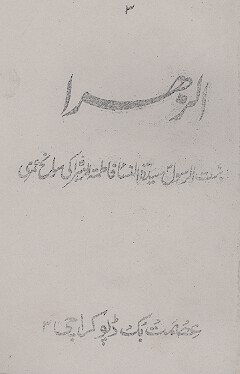 ۳
الزهرا
بنت الرسول سیدۃ النسا فاطمۃ الزہرا کی سوانح عمری
عصمت بک ڈپو کراچی ۳